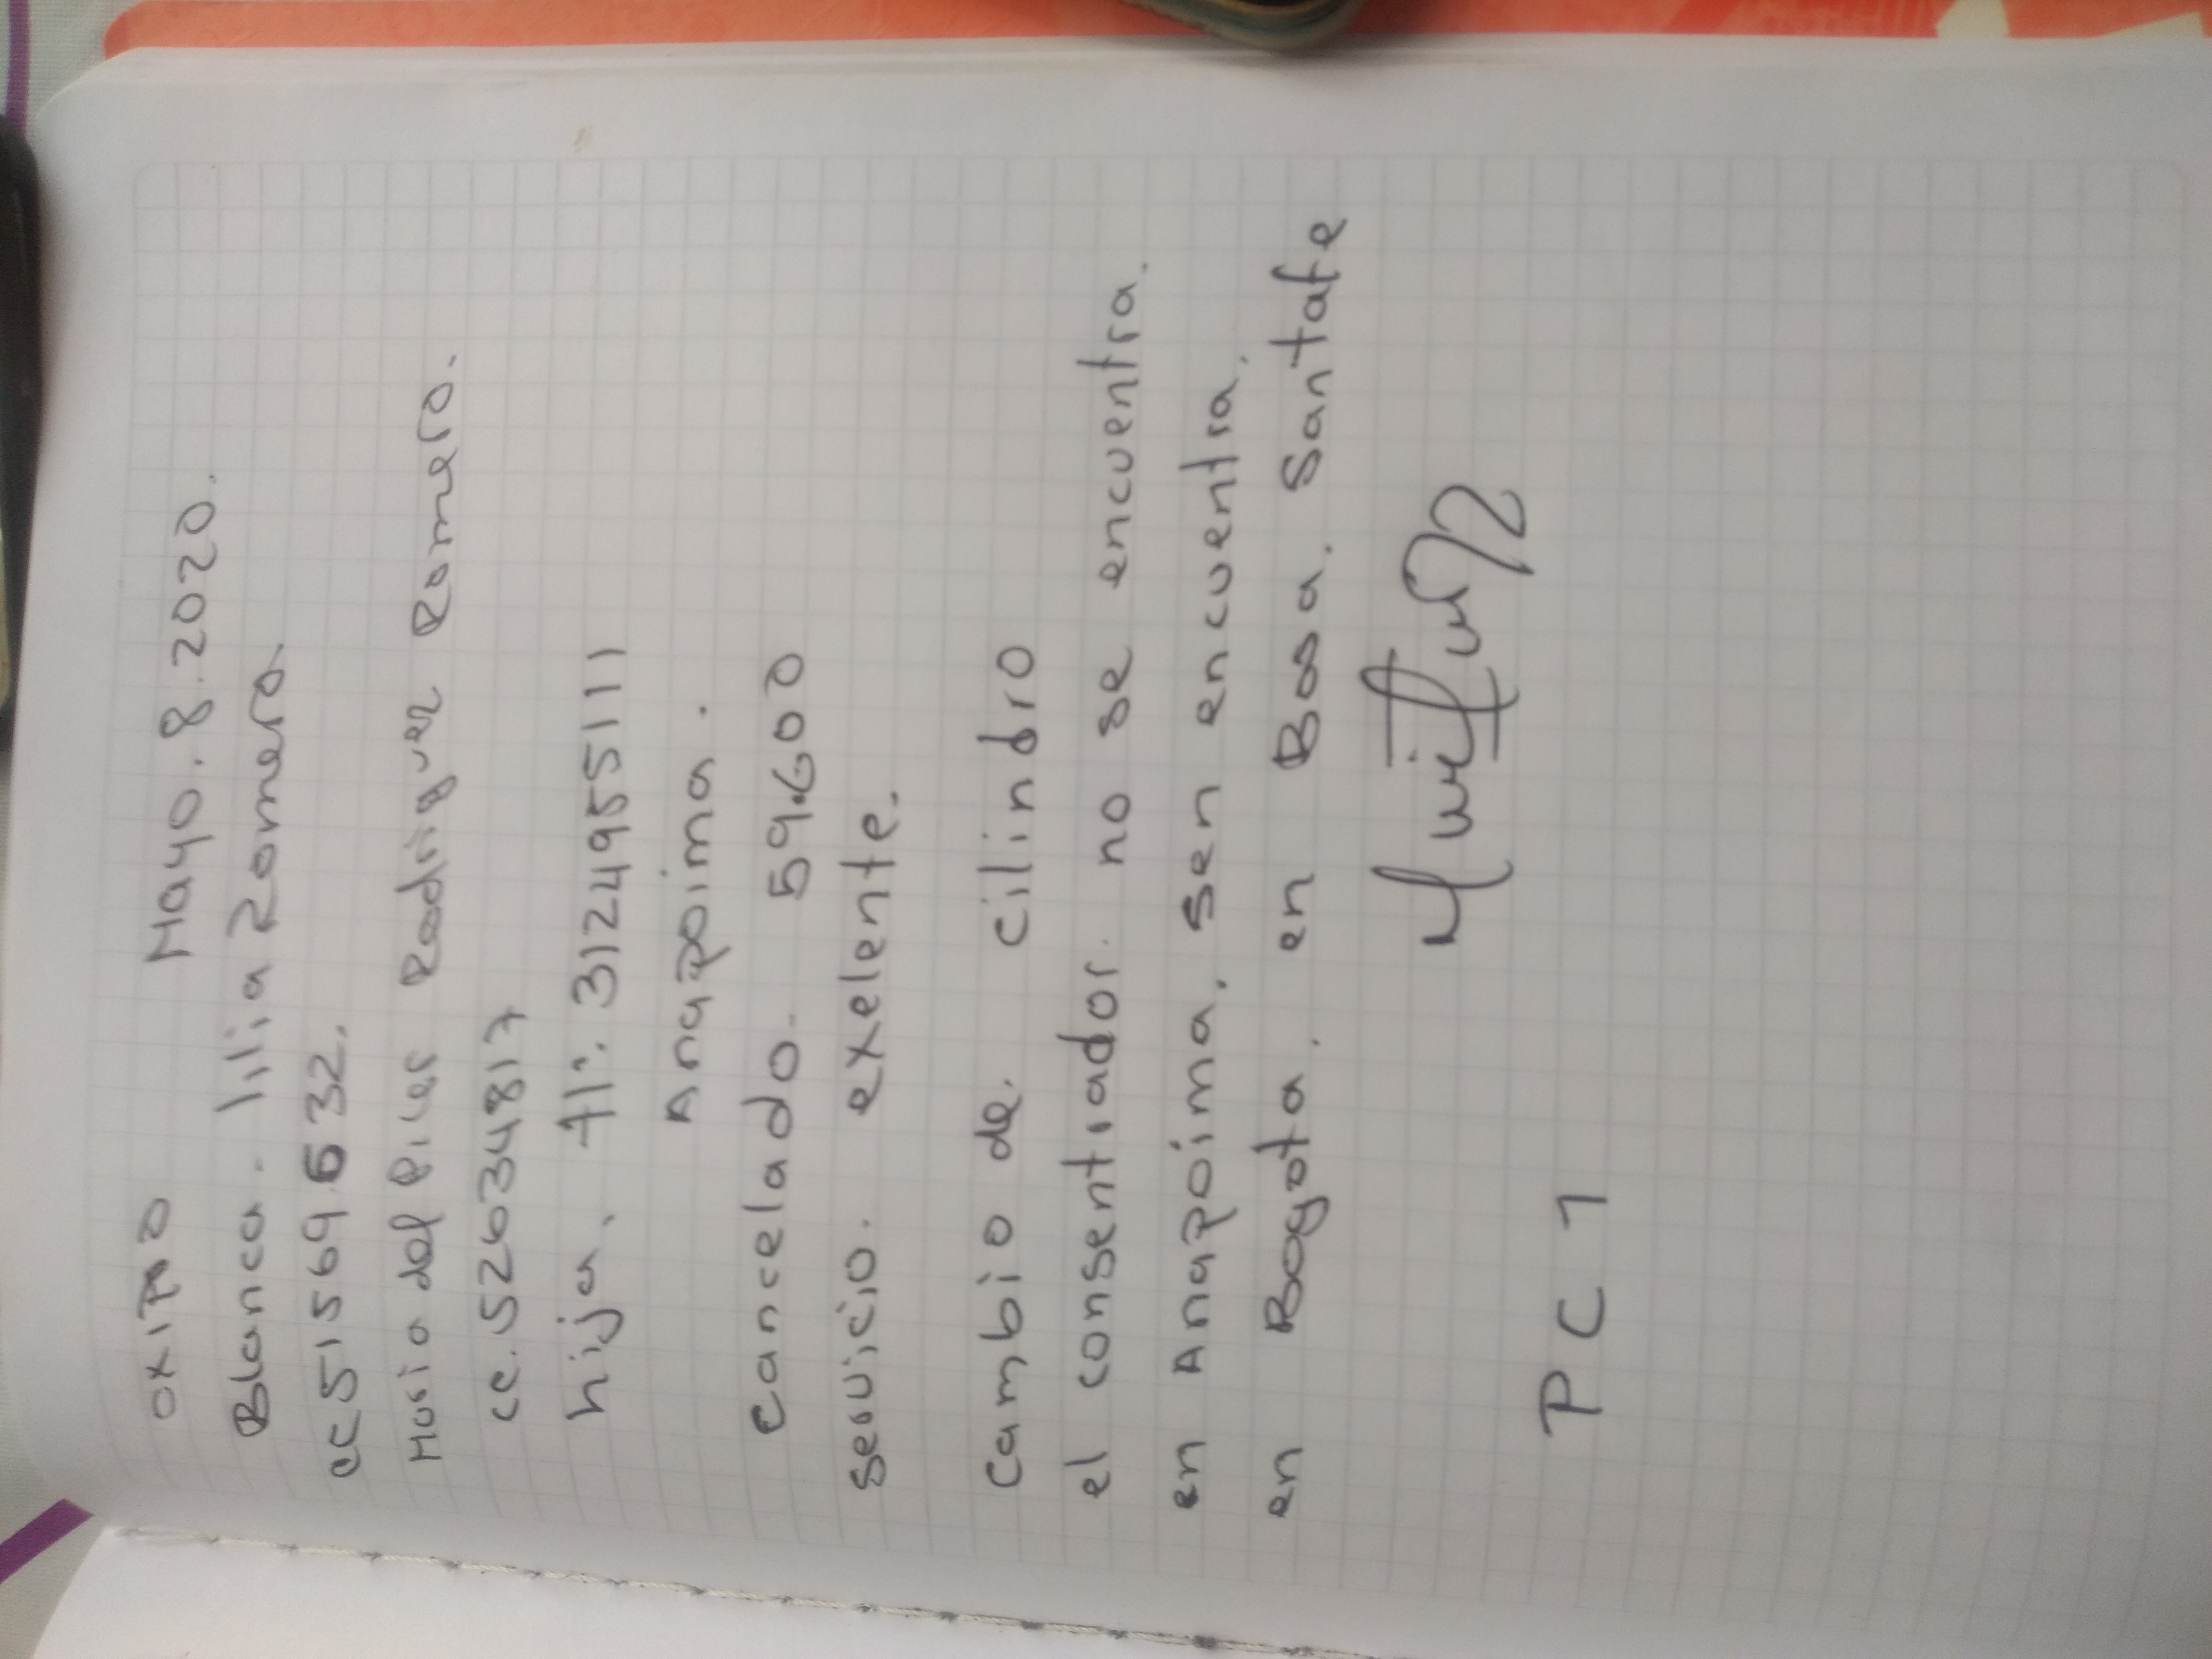 OXIPRO Mayo.8.2020.
Blanca. lilia Romero.
cc 51569.632.
Maria del Pilar Rodriguez Romero.
cc. 52634817
hija. tl: 3124955111
Anapoima.
cancelado. 59.600
servicio. exelente.
Cambio de. cilindro
el consentiador. no se encuentra.
en Anapoima. sen encuentra.
en Bogota. en Bosa. Santafe
P C 1